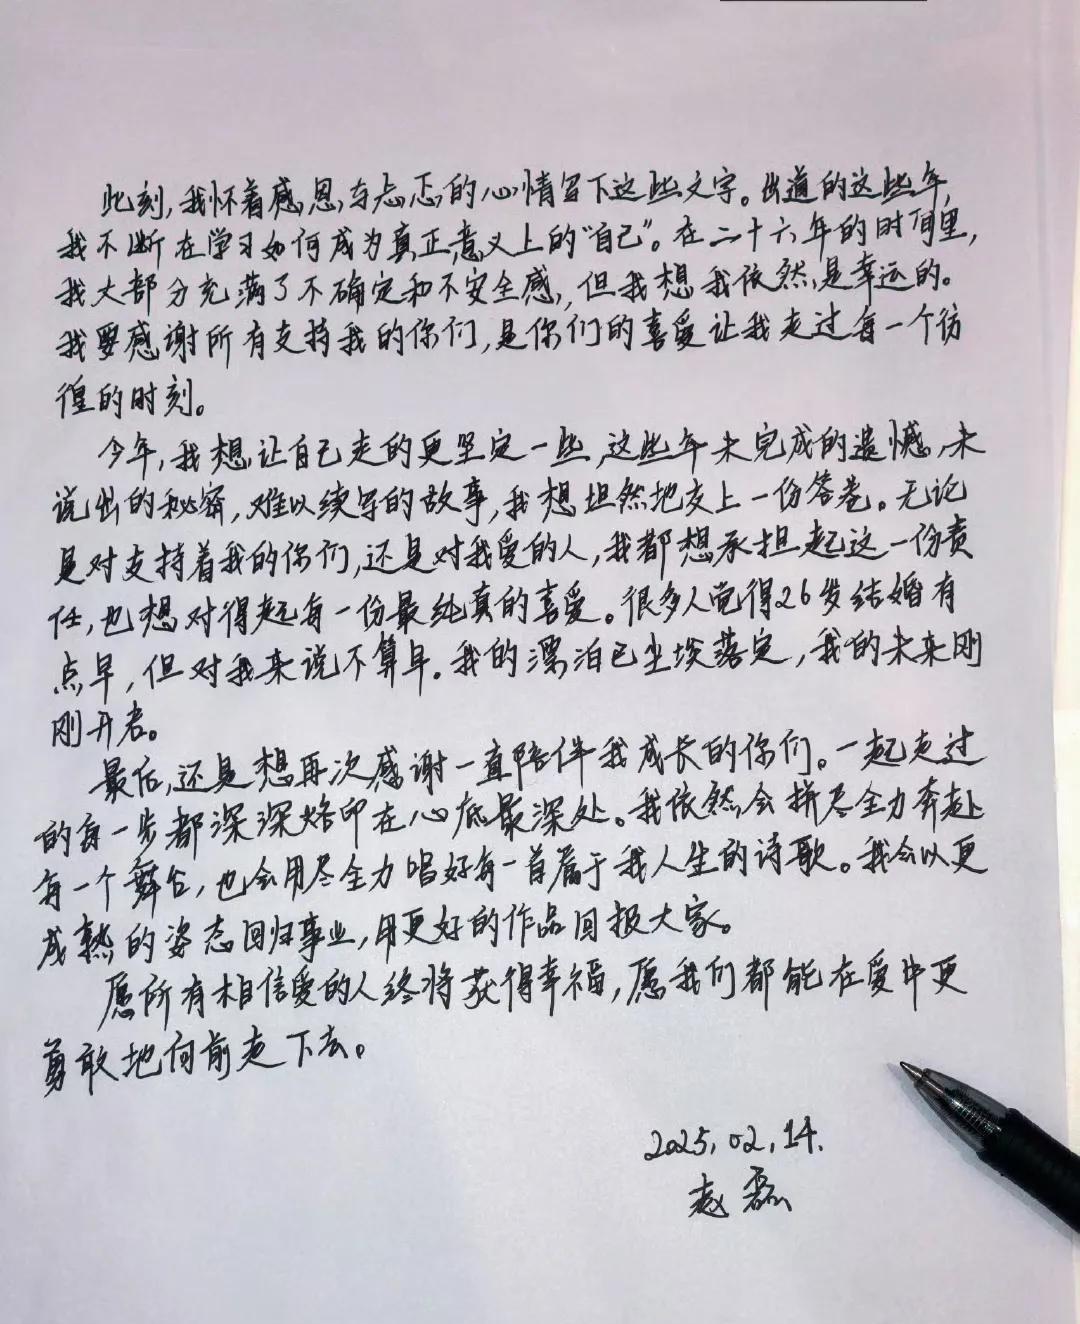 此刻,我怀着感恩与忐忑的心情留下这些文字。出道的这些年,
我不断在学习如何成为真正意义上的"自己"。在二十六年的时间里,
我大部分充满了不确定和不安全感,但我想我依然是幸运的。
我要感谢所有支持我的你们,是你们的喜爱让我走过每一个彷
徨的时刻。
今年,我想让自己走的更坚定一些,这些年未完成的遗憾,未
说出的秘密,难以续写的故事,我想坦然地交上一份答卷。无论
是对支持着我的你们,还是对我爱的人,我都想承担起这一份责
任,也想对得起每一份最纯真的喜爱。很多人觉得26岁结婚有
点早,但对我来说不算早。我的漂泊已尘埃落定,我的未来刚
刚开启。
最后,还是想再次感谢一直陪伴我成长的你们。一起走过
的每一步都深深烙印在心底最深处。我依然会拼尽全力奔赴
每一个舞台,也会用尽全力唱好每一首属于我人生的诗歌。我会以更
成熟的姿态回归事业,用更好的作品回报大家。
愿所有相信爱的人终将获得幸福,愿我们都能在爱中更
勇敢地向前走下去。
2025.02.14.
赵磊